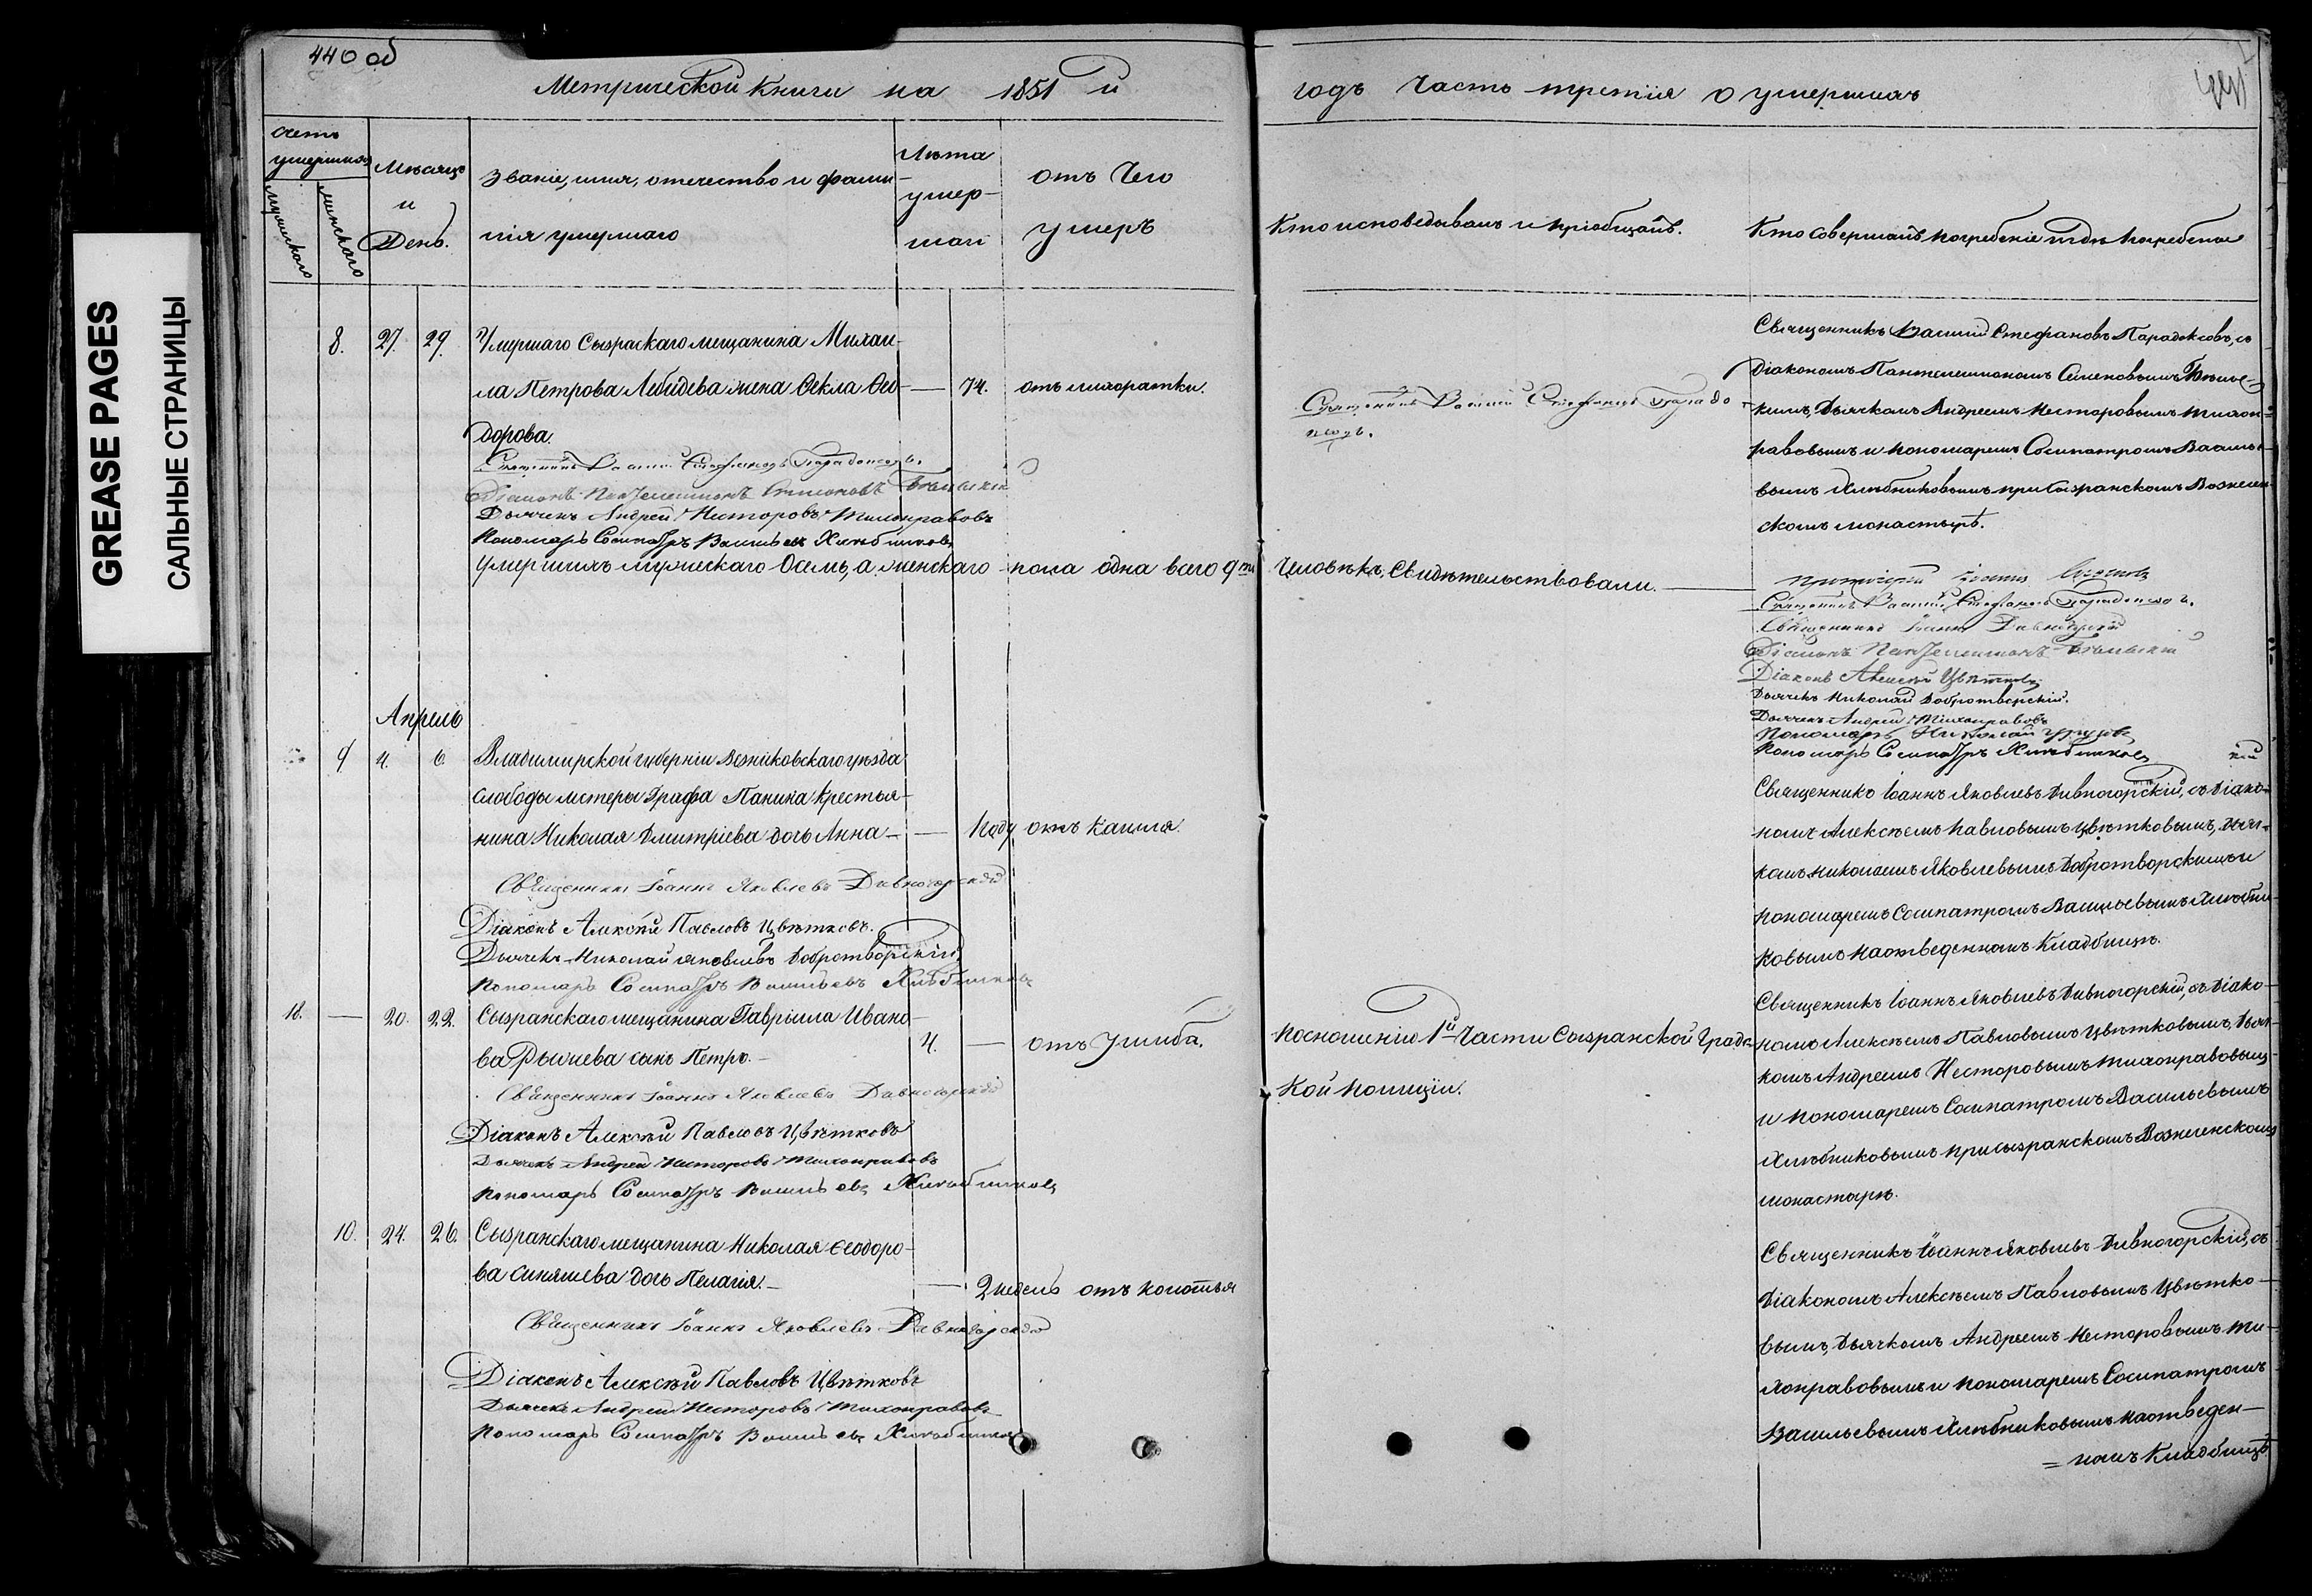 GREASE PAGES
САЛЬНЫЕ СТРАНИЦЫ
440 об
Метрической Книги на 1851 й
годъ Часть третiя о умершихъ
441
Счетъ
умершихъ
мужескаго
женскаго
Мѣсяцъ
и
День.
Званiе, имя, отечество и фами
лiя умершаго
Лѣта
умер-
шаго
отъ Чего
умеръ
Кто исповѣдывалъ и прiобщалъ.
Кто Совершалъ погребенiе и гдѣ погребены
8. 27. 29. Умершаго Сызранскаго мещанина Михаи-
ла Петрова Лебедева жена Ѳекла Ѳео- — 74. отъ лихоратки.
дорова.
Священникъ Василий Стефановъ Парадоксовъ.
Дiаконъ Пантелеимонъ Семеновъ
Дьячекъ Андрей Несторовъ Тихонравовъ
Пономарь Сосипатръ Васильевъ Хлѣбниковъ
Священникъ Василий Стефановъ Парадо-
ксовъ.
Священникъ Василий Стефановъ Парадоксовъ, съ
Дiакономъ Пантелеимономъ Семеновымъ
кимъ, Дьячкомъ Андреемъ Несторовымъ Тихон-
равовымъ и пономаремъ Сосипатромъ Василье-
вымъ Хлѣбниковымъ при Сызранскомъ Вознесен-
скомъ монастырѣ.
Умершихъ мужескаго Осемь, а женскаго пола одна всего 9ть
Человѣкъ, Свидѣтельствовали. —
Протоiерей Iоаннъ
Священникъ Василий Стефановъ Парадоксовъ.
Священникъ Iоаннъ Дивногорскiй
Дiаконъ Пантелеимонъ
Дiаконъ Алексѣй Цвѣтковъ
Дьячекъ Николай Добротворскiй.
Дьячекъ Андрей Тихонравовъ
Пономарь Николай
Пономарь Сосипатръ Хлѣбниковъ
Апрель
9 4. 6. Владимирской губернiи Вязниковскаго уѣзда
слободы мстеры Графа Панина Крестья-
нина Николая Дмитрiева дочь Анна — — 1 году отъ Кашля.
Священникъ Iоаннъ Яковлевъ Дивногорскiй
Дiаконъ Алексѣй Павловъ Цвѣтковъ.
Дьячекъ Николай Яковлевъ Добротворскiй,
Пономарь Сосипатръ Васильевъ Хлѣбниковъ
Священникъ Iоаннъ Яковлевъ Дивногорскiй, съ Дiако-
номъ Алексѣемъ Павловымъ Цвѣтковымъ, дьяч-
комъ Николаемъ Яковлевымъ Добротворскимъ и
пономаремъ Сосипатромъ Васильевымъ Хлѣбни-
ковымъ на отведенномъ Кладбищѣ.
18. — 20. 22. Сызранскаго мещанина Гаврiила Ивано-
ва Рычева сынъ Петръ. — 4. — отъ Ушиба.
Священникъ Iоаннъ Яковлевъ Дивногорскiй
Дiаконъ Алексѣй Павловъ Цвѣтковъ
Дьячекъ Андрей Несторовъ Тихонравовъ
Пономарь Сосипатръ Васильевъ Хлѣбниковъ
По сношенiю 1й Части Сызранской Градс-
кой полицiи.
Священникъ Iоаннъ Яковлевъ Дивногорскiй, съ Дiако-
номъ Алексѣемъ Павловымъ Цвѣтковымъ, Дьяч-
комъ Андреемъ Несторовымъ Тихонравовымъ
и пономаремъ Сосипатромъ Васильевымъ
Хлѣбниковымъ при сызранскомъ Вознесенскомъ
монастырѣ.
10. 24. 26. Сызранскаго мещанина Николая Ѳеодоро-
ва Синяшева дочь Пелагiя. — — 2 недель отъ колотья
Священникъ Iоаннъ Яковлевъ Дивногорскiй
Дiаконъ Алексѣй Павловъ Цвѣтковъ
Дьячекъ Андрей Несторовъ Тихонравовъ
Пономарь Сосипатръ Васильевъ Хлѣбниковъ
Священникъ Iоаннъ Яковлевъ Дивногорскiй, съ
Дiакономъ Алексѣемъ Павловымъ Цвѣтко-
вымъ, Дьячкомъ Андреемъ Несторовымъ Ти-
хонравовымъ и пономаремъ Сосипатромъ
Васильевымъ Хлѣбниковымъ на отведен-
= номъ Кладбищѣ